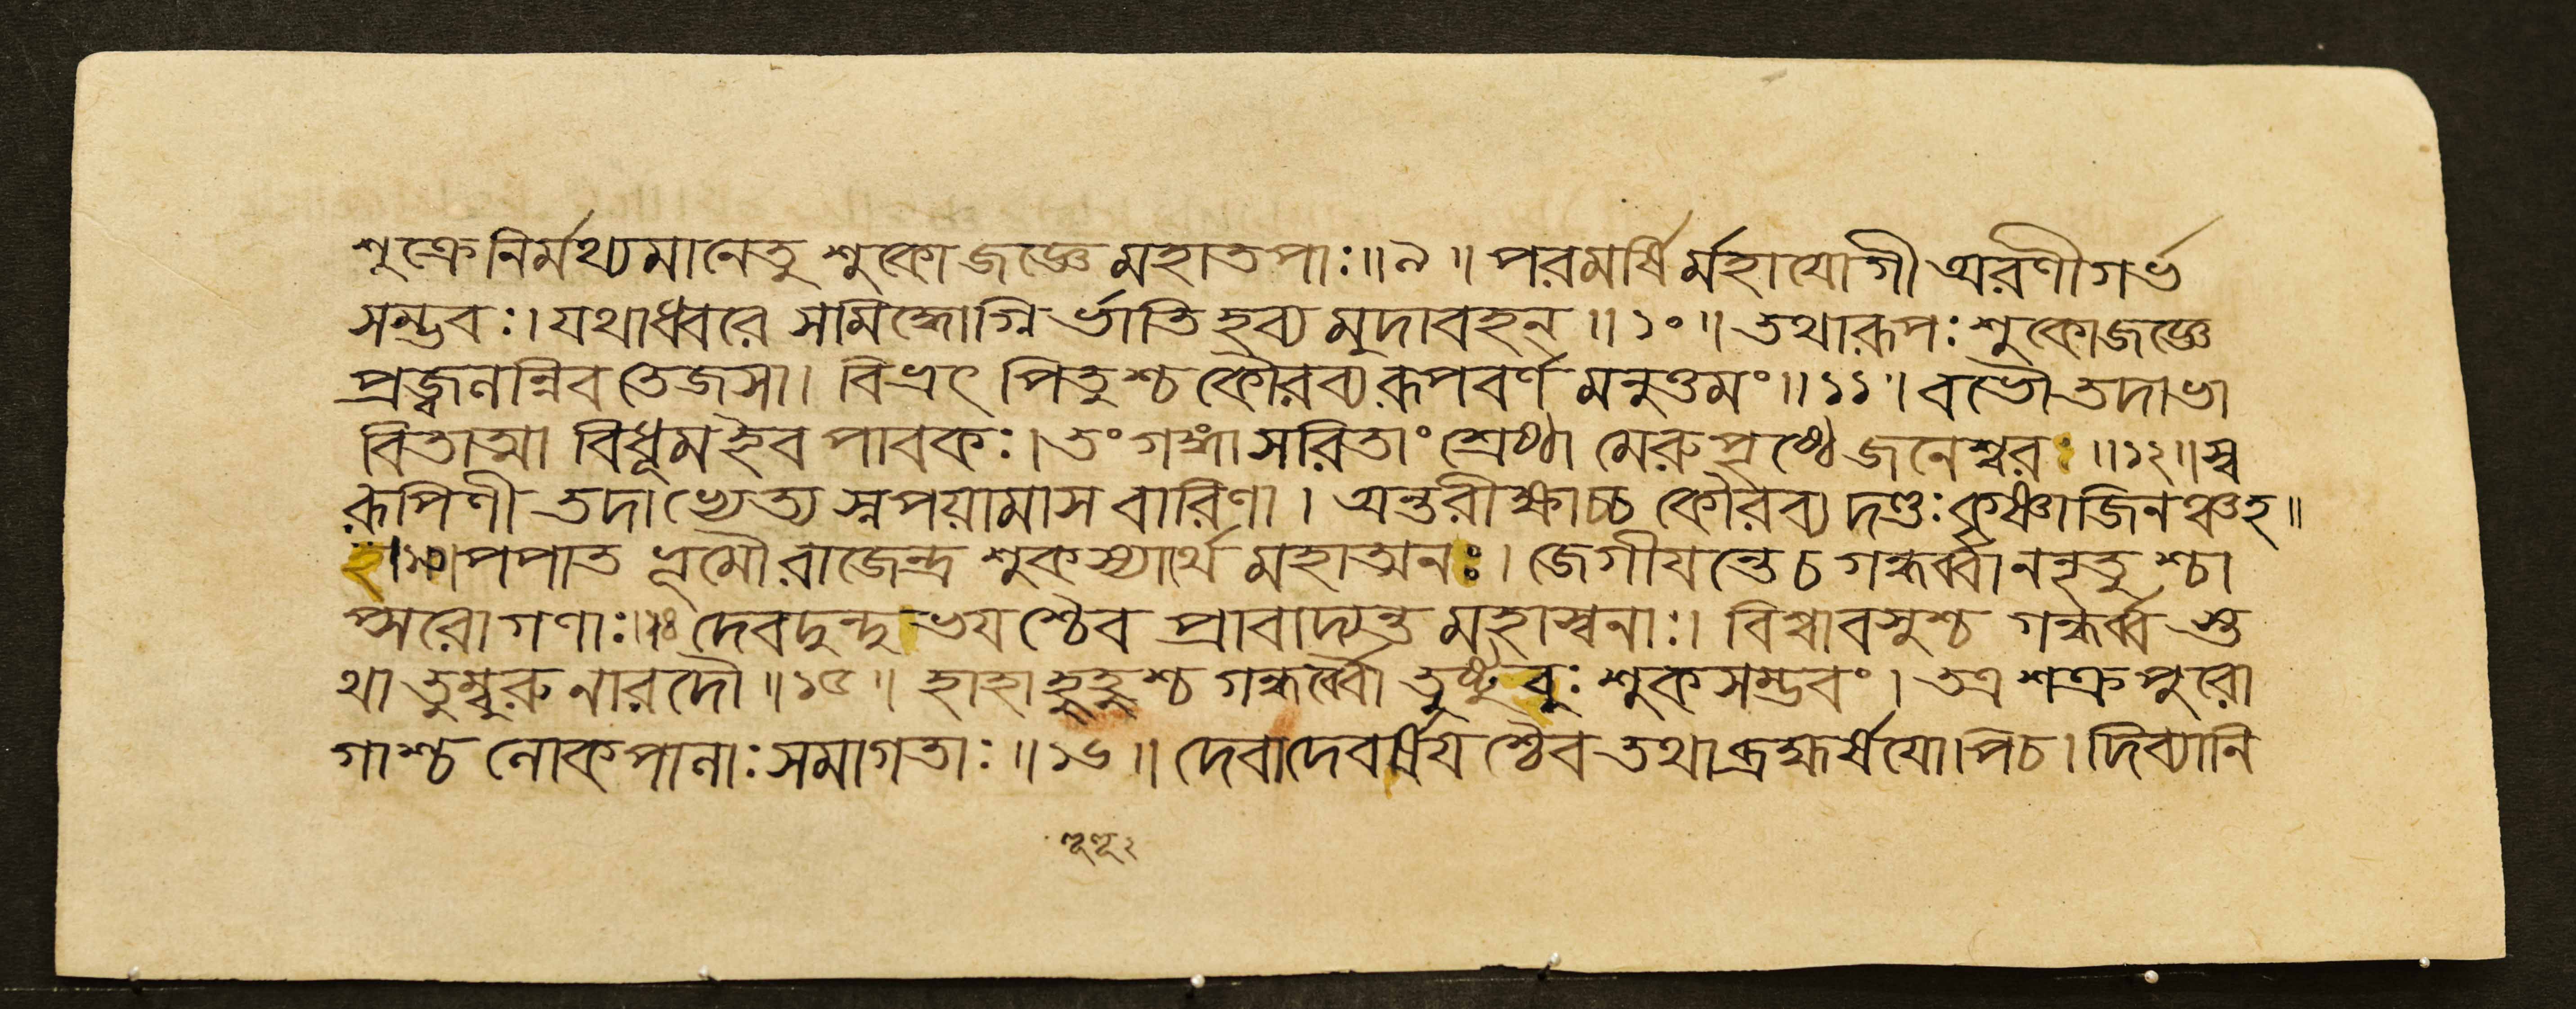 শুক্রেনির্মথ্যমানেতু শুকোজজ্ঞেমহাতপাঃ॥৯॥পরমর্ষির্মহাযোগীঅরণীগর্ভ
সম্ভবঃ।যথাধ্বরে সমিদ্ধোগ্নির্ভাতিহব্যমুদাবহন্॥১০॥তথারূপঃশুকোজজ্ঞে
প্রজ্বলন্নিবতেজসা। বিভ্রৎ পিতুশ্চকৌরব্যরূপবর্ণমনুত্তমং॥১১॥বভৌতদাভা
বিতাত্মা বিধূমইবপাবকঃ।তংগঙ্গাসরিতাংশ্রেষ্ঠা মেরুপৃষ্ঠেজনেশ্বরঃ॥১২॥স্ব
রূপিণীতদাভ্যেত্যস্নপয়ামাসবারিণা। অন্তরীক্ষাচ্চকৌরব্যদণ্ডঃকৃষ্ণাজিনঞ্চহ॥
হ।১৩।পপাতভূমৌরাজেন্দ্রশুকস্যার্থেমহাত্মনঃ।জেগীযন্তেচগন্ধর্ব্বাননৃতুশ্চা
প্সরোগণাঃ।১৪দেবদুন্দুভযশ্চৈবপ্রাবাদ্যন্তমহাস্বনাঃ।বিশ্বাবসুশ্চগন্ধর্ব্বস্ত
থাতুম্বুরুনারদৌ॥১৫॥হাহাহূহূশ্চগন্ধর্ব্বৌতুষ্টুবুঃশুকসম্ভবং।তত্রশক্রপুরো
গাশ্চলোকপালাঃসমাগতাঃ॥১৬॥দেবাদেবর্ষযশ্চৈবতথাব্রহ্মর্ষযো।পিচ।দিব্যানি